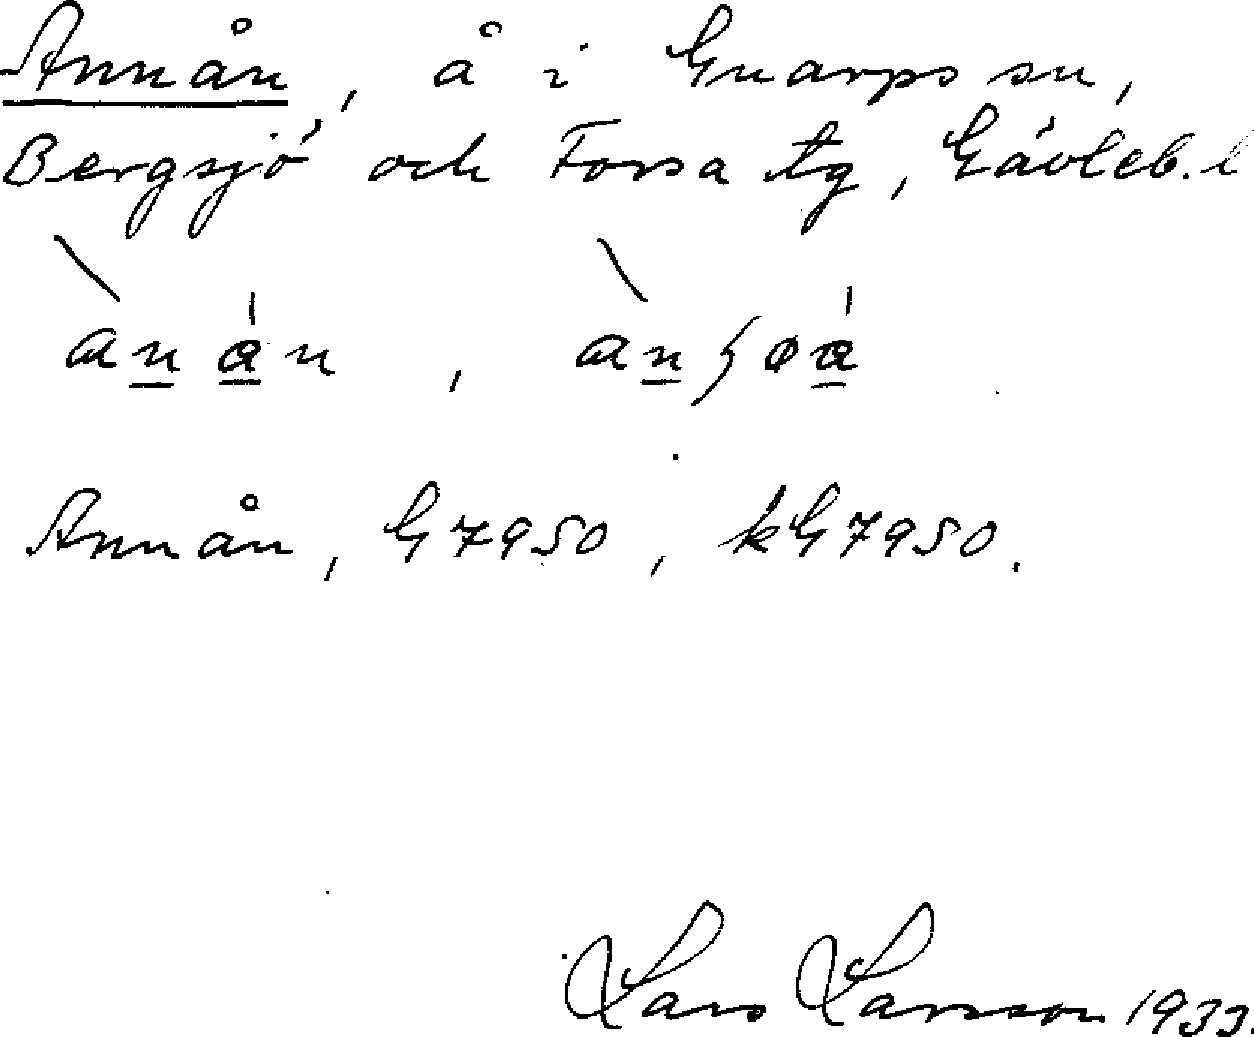 Annån, å i Gnarps sn,
Bergsjö och Forsa tg, Gävleb. l
Annån, G 7950, kG7950.
Lars Larsson 1933.